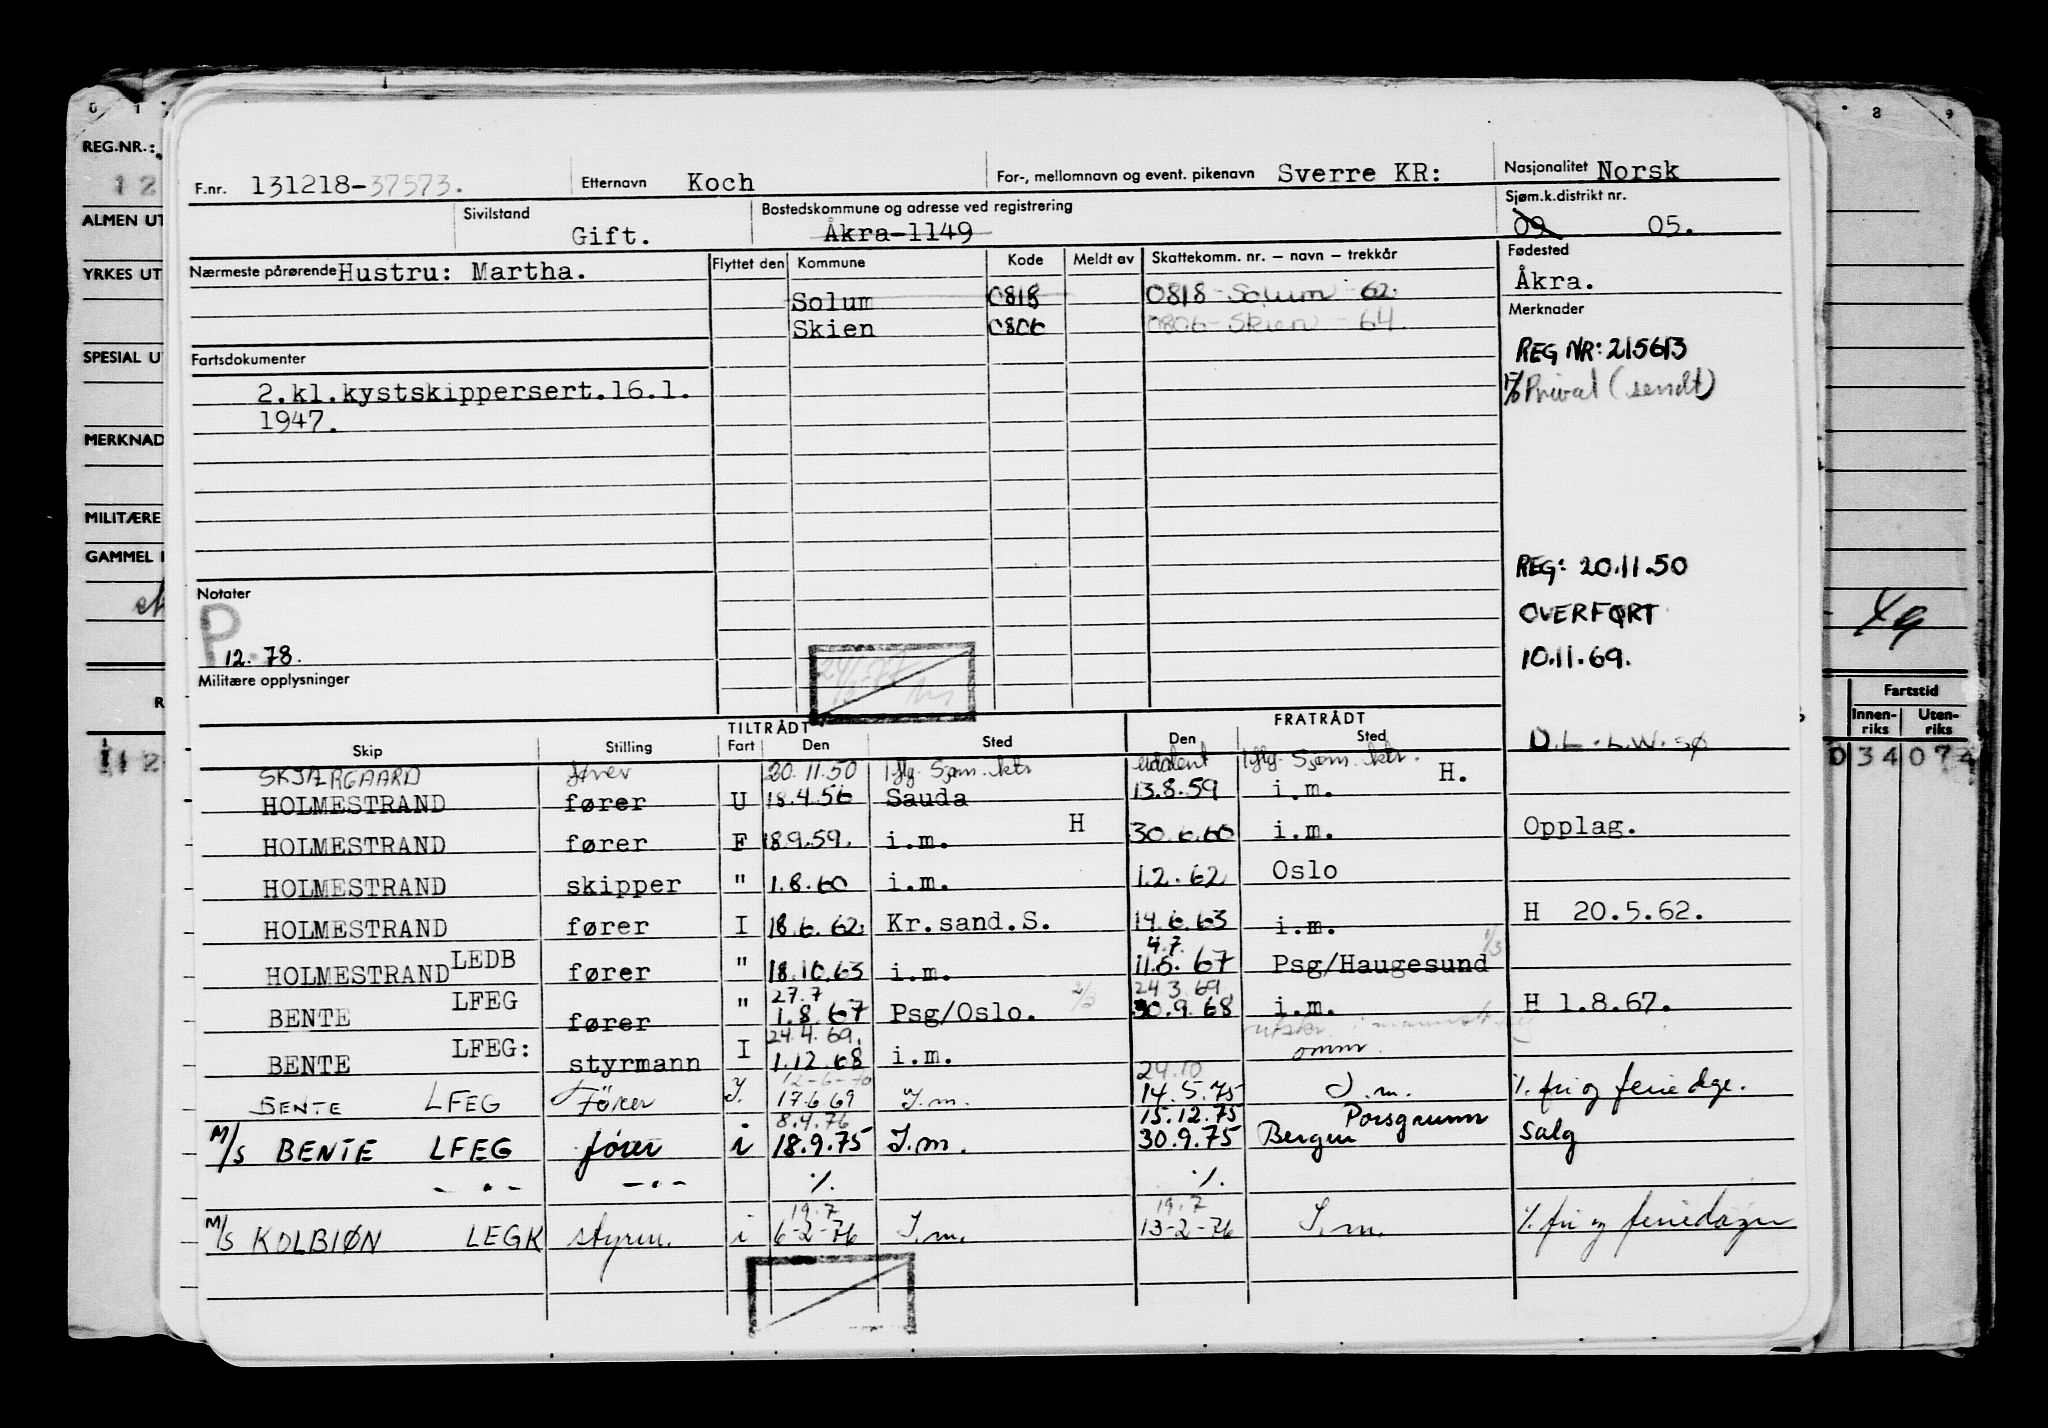 0 1 8 9
REG.NR.:
12
ALMEN UT
YRKES UT
SPESIAL UT
MERKNAD
MILITÆRE
GAMMEL
F.nr. 131218-37573. Etternavn Koch For-, mellomnavn og event. pikenavn Sverre KR: Nasjonalitet Norsk
Sivilstand Gift. Bostedskommune og adresse ved registrering Åkra-1149 Sjøm.k.distrikt nr. 09 05.
Nærmeste pårørende Hustru: Martha. Flyttet den Kommune Kode Meldt av Skattekomm. nr. – navn – trekkår Fødested
Åkra.
Solum 0818 0818 - Solum - 62.
Skien 0806 0806 - Skien - 64.
Merknader
REG NR: 215613
Privat (sendt)
Fartsdokumenter
2.kl.kystskippersert.16.1.
1947.
REG: 20.11.50
OVERFØRT
10.11.69.
Notater
P
12. 78.
Militære opplysninger
Fartstid
Innenriks Utenriks
034 07
TILTRÅDT FRATRÅDT
Skip Stilling Fart Den Sted Den Sted
SKJÆRGAARD fører 20.11.50 iflg. Sjøm. ktr iflg. Sjøm. ktr.
HOLMESTRAND fører U 18.4.56 Sauda 13.8.59 i.m. H.
HOLMESTRAND fører F 18.9.59. i.m. H 30.6.60 i.m. Opplag.
HOLMESTRAND skipper " 1.8.60 i.m. 1.2.62 Oslo
HOLMESTRAND fører I 18.6.62. Kr.sand.S. 14.6.63 i.m. H 20.5.62.
4.7.
HOLMESTRAND LEDB fører " 18.10.63 i.m. 11.5.67 Psg/Haugesund
27.7 24.3.69
BENTE LFEG fører " 1.8.67 Psg/Oslo. 30.9.68 i.m. H 1.8.67.
24.4.69.
BENTE LFEG: styrmann I 1.12.68 i.m.
12-6-70 24.10
BENTE LFEG fører I. 17.6.69 I.m. 14.5.75 I.m. %. fri og ferie dge.
8.4.76 15.12.75 Porsgrunn
M/S BENTE LFEG fører i 18.9.75 I.m. 30.9.75 Bergen salg
- " - - " - %. %.
19.7 19.7
M/S KOLBIØN LEGK styrm. i 6-2-76 I.m. 13-2-76 I.m. %. fri og feriedager